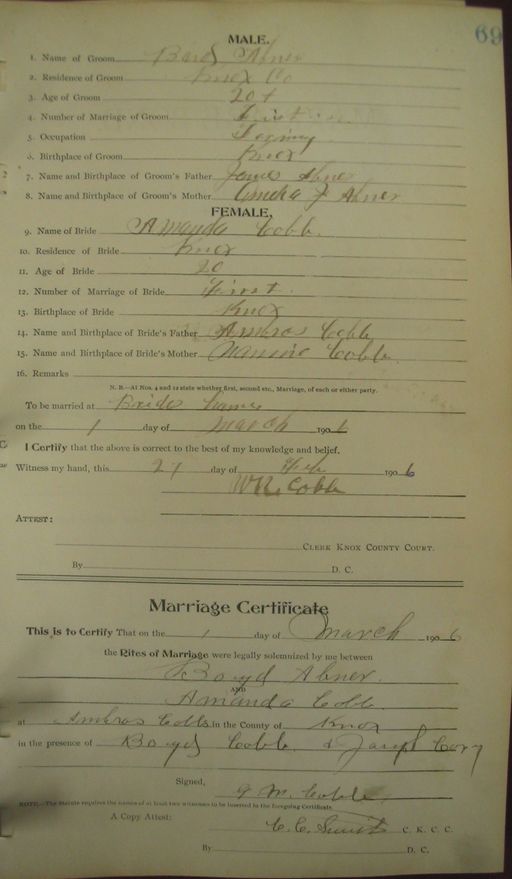 69
MALE.
1. Name of Groom Boyd Abner
2. Residence of Groom Knox Co
3. Age of Groom 20
4. Number of Marriage of Groom First
5. Occupation Farming
6. Birthplace of Groom Knox
7. Name and Birthplace of Groom's Father James Abner
8. Name and Birthplace of Groom's Mother Abner
FEMALE.
9. Name of Bride Amanda Cobb.
10. Residence of Bride Knox
11. Age of Bride 20
12. Number of Marriage of Bride First.
13. Birthplace of Bride Knox
14. Name and Birthplace of Bride's Father Ambros Cobb
15. Name and Birthplace of Bride's Mother Nannie Cobb.
16. Remarks
N. B.—At Nos. 4 and 12 state whether first, second etc., Marriage, of each or either party.
To be married at Brides home
on the 1 day of March 1906
I Certify that the above is correct to the best of my knowledge and belief.
Witness my hand, this 27 day of Feb 1906
Cobb
ATTEST:
CLERK KNOX COUNTY COURT.
By D. C.
Marriage Certificate
This is to Certify That on the 1 day of March 1906
the Rites of Marriage were legally solemnized by me between
Boyd Abner.
AND
Amanda Cobb.
at Ambros Cobbs in the County of Knox
in the presence of Boyd Cobb. & Joseph
Signed,
G. M. Cobb.
NOTE.—The Statute requires the names of at least two witnesses to be inserted in the foregoing Certificate.
A Copy Attest: C. C. Smith C. K. C. C.
By D. C.